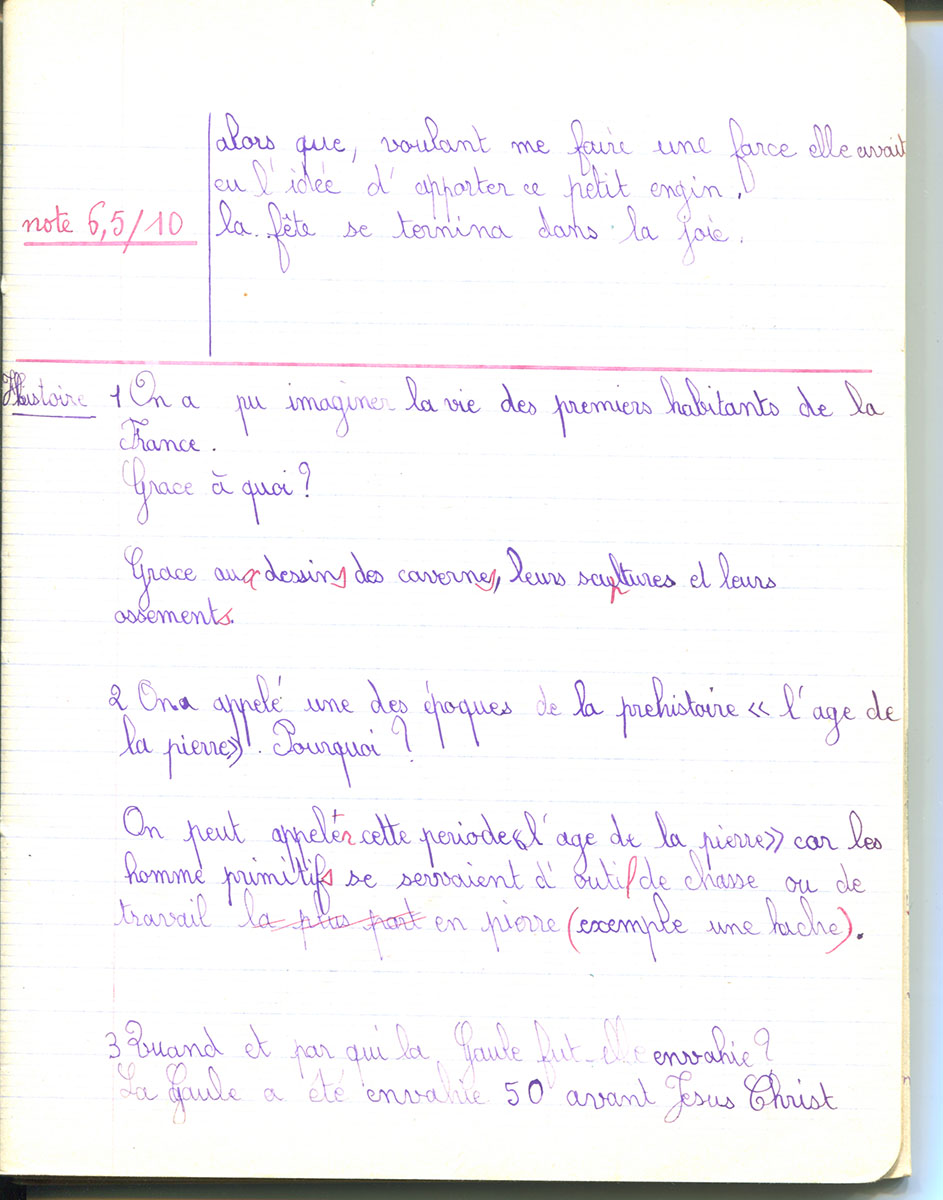 alors que, voulant me faire une farce elle avait
eu l'idée d'apporter ce petit engin.
note 6,5/10
la fête se termina dans la joie.
Histoire
1 On a pu imaginer la vie des premiers habitants de la
France.
Grace à quoi?
Grace aux dessins des cavernes, leurs sculptures et leurs
ossements.
2 On a appelé une des époques de la prehistoire « l'age de
la pierre». Pourquoi?
On peut appeler cette periode « l'age de la pierre» car les
homme primitifs se servaient d'outils de chasse ou de
travail la plus part en pierre (exemple une hache).
3 Quand et par qui la Gaule fut-elle envahie?
La Gaule a été envahie 50 avant Jesus Christ